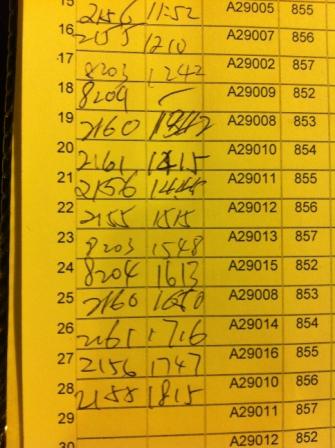 15 2156 11:52 A29005 855
16 2155 1210 A29007 856
17 8203 1242 A29002 857
18 8204 A29009 852
19 2160 A29008 853
20 2161 1415 A29010 854
21 2156 A29011 855
22 2155 1515 A29012 856
23 8203 1548 A29013 857
24 8204 1613 A29015 852
25 2160 1650 A29008 853
26 2161 1716 A29014 854
27 2156 1747 A29016 855
28 2155 1815 A29010 856
29 A29011 857
30 A29012 852